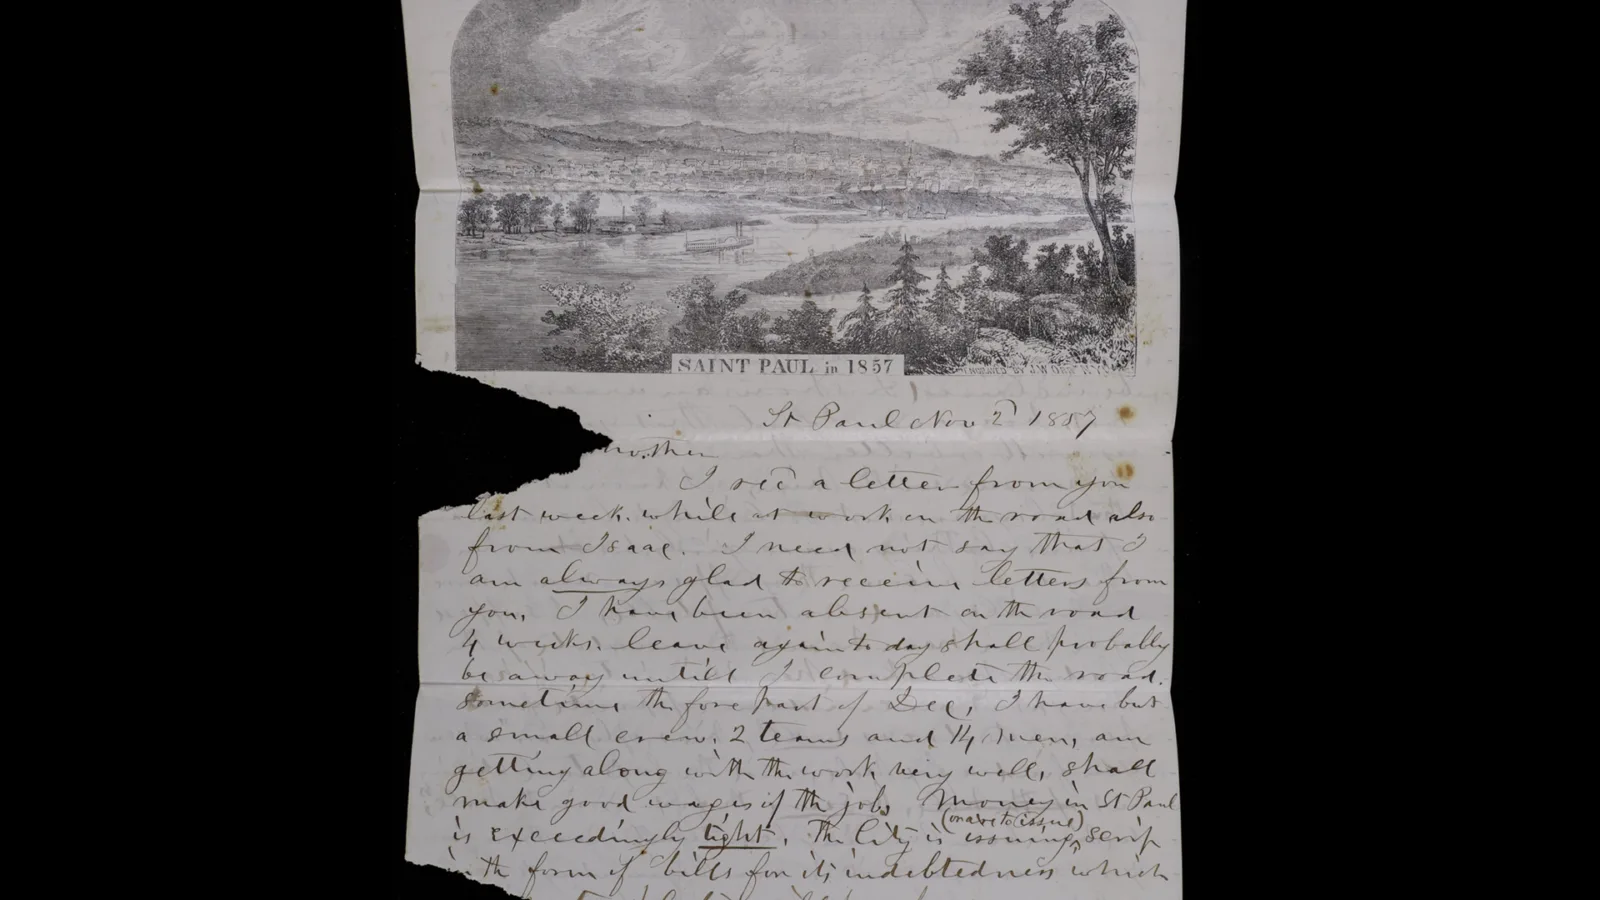 SAINT PAUL in 1857
ENGRAVED BY J.W. ORR N.Y.
St Paul Nov 2d 1857
mother
I recd a letter from you
last week. while at work on the road also
from Isaac. I need not say that I
am always glad to receive letters from
you, I have been absent on the road
4 weeks. leave again to day shall probably
be away untill I complete the road.
sometime the fore part of Dec, I have but
a small crew. 2 teams and 14 men, am
getting along with the work very well, shall
make good wages of the job, Money in St Paul
is exceedingly tight. The City is issuing (or are to issue) scrip
in the form of bills for its indebtedness which